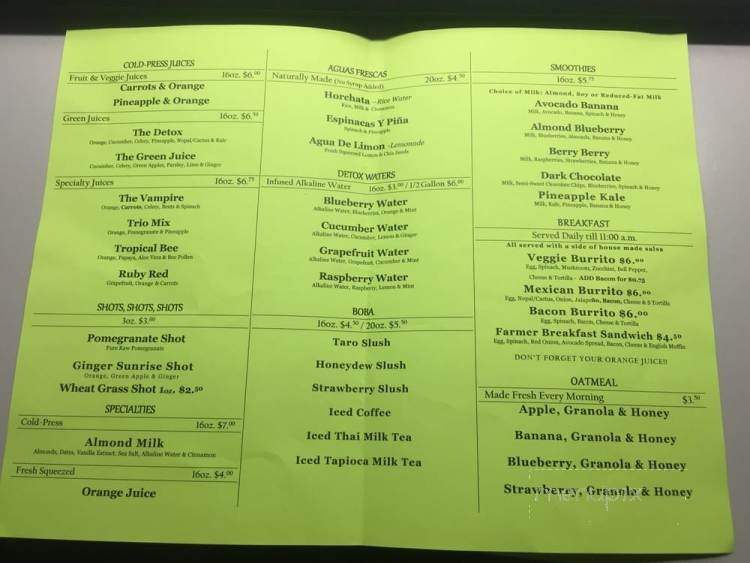 COLD-PRESS JUICES
Fruit & Veggie Juices 16oz. $6.00
Carrots & Orange
Pineapple & Orange
Green Juices 16oz. $6.50
The Detox
Orange, Cucumber, Celery, Pineapple, Nopal/Cactus & Kale
The Green Juice
Cucumber, Celery, Green Apples, Parsley, Lime & Ginger
Specialty Juices 16oz. $6.75
The Vampire
Orange, Carrots, Celery, Beets & Spinach
Trio Mix
Orange, Pomegranate & Pineapple
Tropical Bee
Orange, Papaya, Aloe Vera & Bee Pollen
Ruby Red
Grapefruit, Orange & Carrots
SHOTS, SHOTS, SHOTS
3oz. $3.00
Pomegranate Shot
Pure Raw Pomegranate
Ginger Sunrise Shot
Orange, Green Apple & Ginger
Wheat Grass Shot 1oz. $2.50
SPECIALTIES
Cold-Press 16oz. $7.00
Almond Milk
Almonds, Dates, Vanilla Extract, Sea Salt, Alkaline Water & Cinnamon
Fresh Squeezed 16oz. $4.00
Orange Juice
AGUAS FRESCAS
Naturally Made (No Syrup Added) 20oz. $4.50
Horchata -Rice Water
Rice, Milk & Cinnamon
Espinacas Y Piña
Spinach & Pineapple
Agua De Limon -Lemonade
Fresh Squeezed Lemon & Chia Seeds
DETOX WATERS
Infused Alkaline Water 16oz. $3.00 / 1/2 Gallon $6.00
Blueberry Water
Alkaline Water, Blueberries, Orange & Mint
Cucumber Water
Alkaline Water, Cucumber, Lemon & Ginger
Grapefruit Water
Alkaline Water, Grapefruit, Cucumber & Mint
Raspberry Water
Alkaline Water, Raspberry, Lemon & Mint
BOBA
16oz. $4.50 / 20oz. $5.50
Taro Slush
Honeydew Slush
Strawberry Slush
Iced Coffee
Iced Thai Milk Tea
Iced Tapioca Milk Tea
SMOOTHIES
16oz. $5.75
Choice of Milk: Almond, Soy or Reduced-Fat Milk
Avocado Banana
Milk, Avocado, Banana, Spinach & Honey
Almond Blueberry
Milk, Blueberries, Almonds, Banana & Honey
Berry Berry
Milk, Raspberries, Strawberries, Banana & Honey
Dark Chocolate
Milk, Semi-Sweet Chocolate Chips, Blueberries, Spinach & Honey
Pineapple Kale
Milk, Kale, Pineapple, Banana & Honey
BREAKFAST
Served Daily till 11:00 a.m.
All served with a side of house made salsa
Veggie Burrito $6.00
Egg, Spinach, Mushroom, Zucchini, Bell Pepper,
Cheese & Tortilla - ADD Bacon for $0.75
Mexican Burrito $6.00
Egg, Nopal/Cactus, Onion, Jalapeño, Bacon, Cheese & Tortilla
Bacon Burrito $6.00
Egg, Spinach, Bacon, Cheese & Tortilla
Farmer Breakfast Sandwich $4.50
Egg, Spinach, Red Onion, Avocado Spread, Bacon, Cheese & English Muffin
DON'T FORGET YOUR ORANGE JUICE!!
OATMEAL
Made Fresh Every Morning $3.50
Apple, Granola & Honey
Banana, Granola & Honey
Blueberry, Granola & Honey
Strawberry, Granola & Honey
menupix